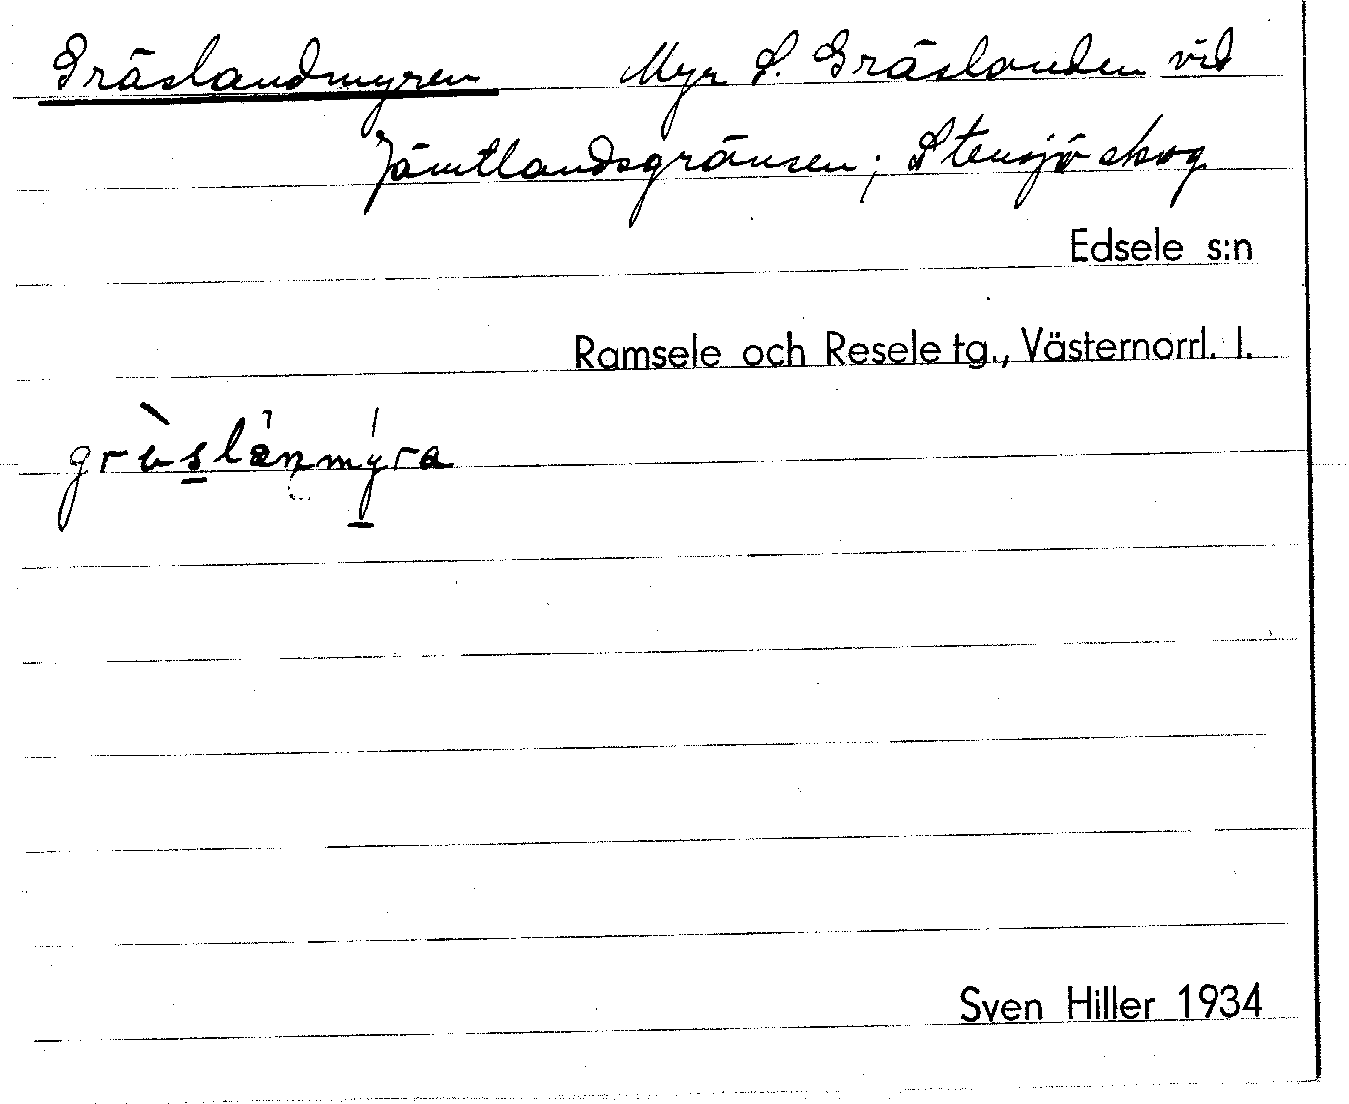 Gräslandmyren Myr S. Gräslanden vid
Jämtlandsgränsen; Stensjö skog
Edsele s:n
Ramsele och Resele tg., Västernorrl. l.
Sven Hiller 1934